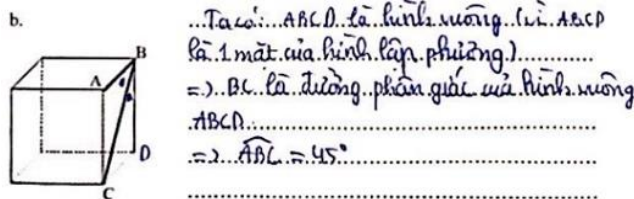 b.
Ta có: ABCD là hình vuông (vì ABCD
là 1 mặt của hình lập phương)
=> BC là đường phân giác của hình vuông
ABCD
=> ABC = 45°
A
B
D
C